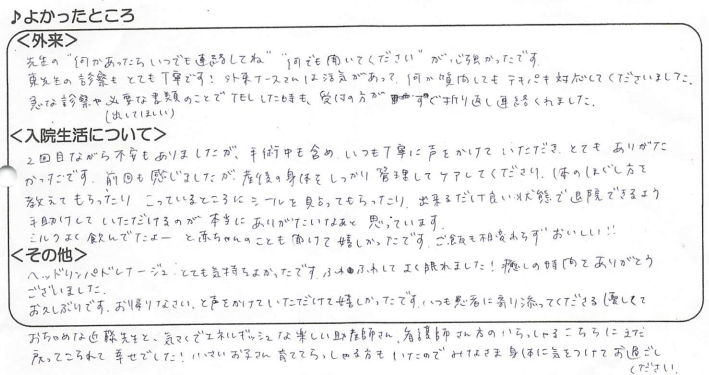 ♪よかったところ
<外来>
先生の“何かあったらいつでも連絡してね”“何でも聞いてください”が心強かったです。
東先生の診察もとても丁寧です！外来ナースさんは活気があって、何か質問してもテキパキ対応してくださいました。
急な診察や必要な書類のことでTELした時も、受付の方がすぐ折り返し連絡くれました。
(出してほしい)
<入院生活について>
2回目ながら不安もありましたが、手術中も含め、いつも丁寧に声をかけていただき、とてもありがた
かったです。前回も感じましたが、産後の身体をしっかり管理してケアしてくださり、体のほぐし方を
教えてもらったり、こっているところにシールを貼ってもらったり、出来るだけ良い状態で退院できるよう
手助けしていただけるのが本当にありがたいなぁと思っています。
ミルクよく飲んでたよー と赤ちゃんのことも聞けて嬉しかったです。ご飯も相変わらずおいしい!!
<その他>
ヘッドリンパドレナージュ、とても気持ちよかったです。ふわふわしてよく眠れました！癒しの時間をありがとう
ございました。
お久しぶりです。お帰りなさい、と声をかけていただけて嬉しかったです。いつも患者に寄り添ってくださる優しくて
おちゃめな近藤先生と、気さくでエネルギッシュな楽しい助産師さん、看護師さん方のいらっしゃるこちらにまた
戻ってこられて幸せでした！小さいお子さん育ててらっしゃる方もいたので みなさま身体に気をつけてお過ごし
ください。